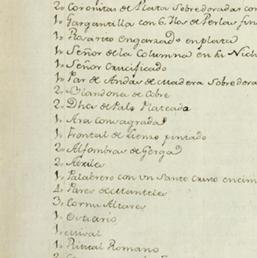 2, Coronitas de Plata Sobredoradas con
1, Gargantilla con 6. Ilos de Perlas fin
1, Rosario engarzado en plata
1, Señor de la Columna en su Nich
1, Señor Crucificado
1, Par de Andas de Madera Sobredora
2, de Cobre
2, Dhas de Palo Plateada
1, Ara Consagrada
1, Frontal de Lienzo pintado
2, Alfombras de
2, Atriles
1, Palabrero con vn Santo Cristo encim
4, Pares de Manteles
3, Cornu Altares
1, Ostiario
1, Misal
1, Ritual Romano